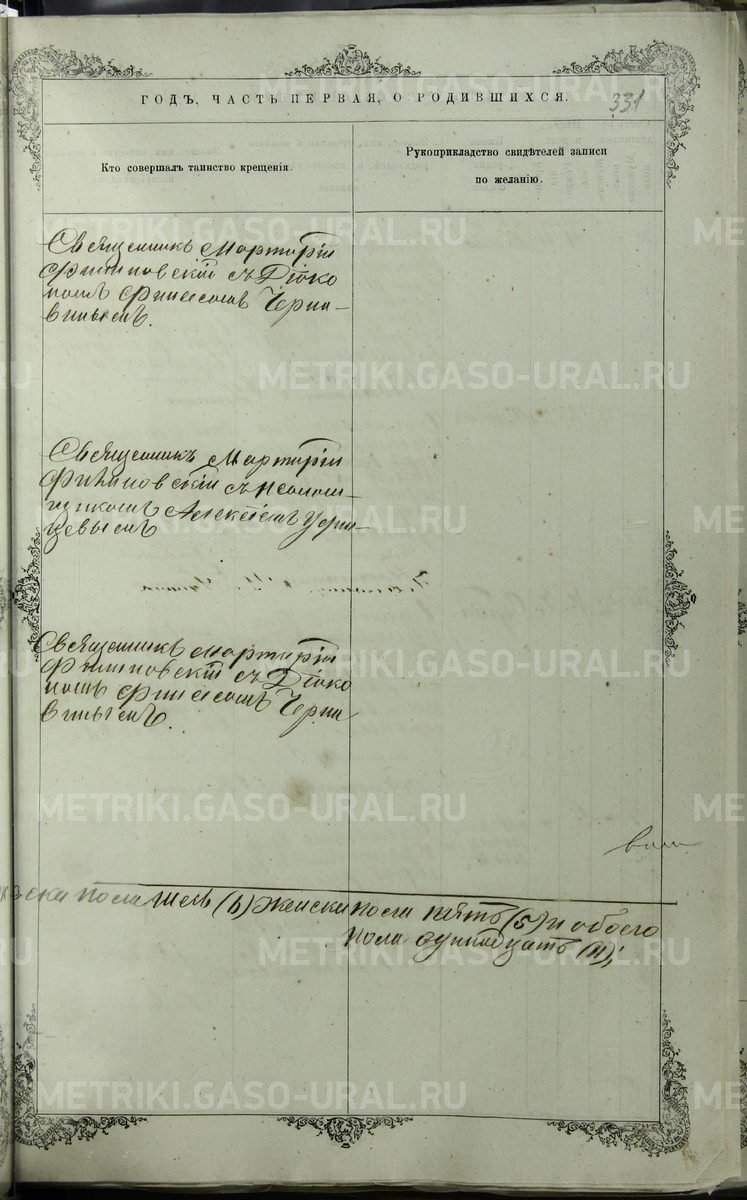 ГОДЪ, ЧАСТЬ ПЕРВАЯ, О РОДИВШИХСЯ.
331
Кто совершалъ таинство крещенія.
Рукоприкладство свидѣтелей записи
по желанію.
Священникъ Мартирій
Филиповскій съ Діако
номъ Финеесомъ Черна–
виннымъ.
Священникъ Мартирій
Филиповскій съ Псалом–
щикомъ Алексіемъ
цевымъ
Священникъ Мартирій
Филиповскій съ Діако
номъ Финеесомъ Черна
виннымъ.
пола шесть (6) женска пола пять (5) и обоего
пола одиннадцать (11),
METRIKI.GASO-URAL.RU